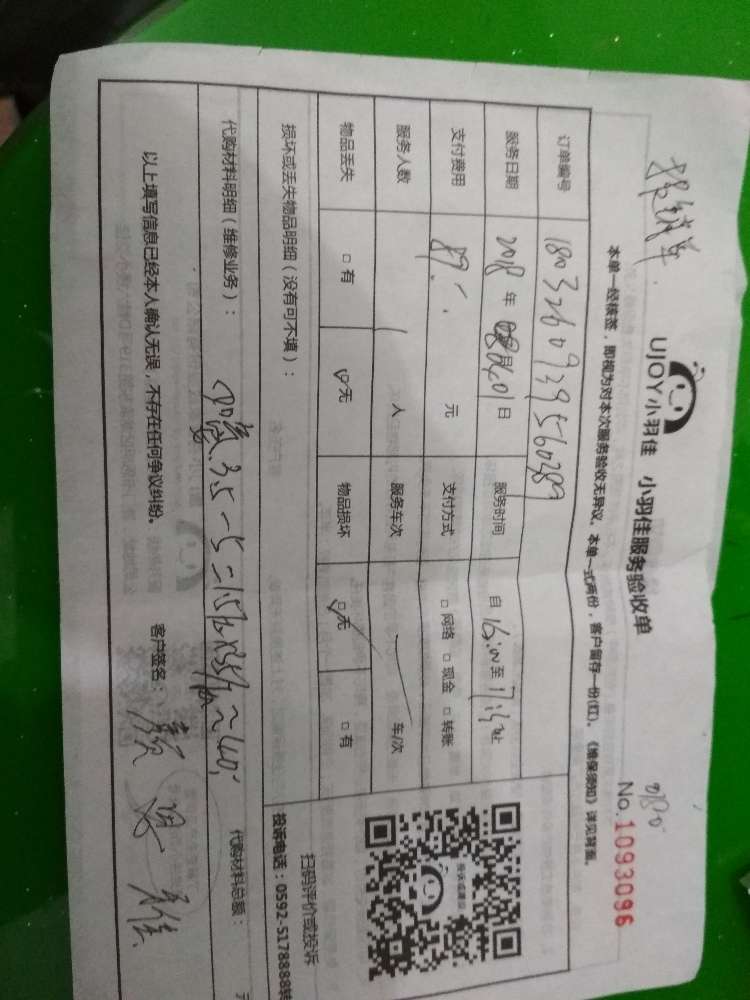 UJOY小羽佳 小羽佳服务验收单
No.1093096
本单一经核签，即视为对本次服务验收无异议。本单一式两份，客户留存一份(红)。《维保须知》详见背面。
订单编号 1803260939560289
服务日期 2018年 01日 服务时间 自16:00至
支付费用 89. 元 支付方式 □网络 □现金 □转账
服务人数 1 人 服务车次 车/次
物品丢失 □有 □无 物品损坏 □无 □有
损坏或丢失物品明细（没有可不填）：
扫码评价或投诉
投诉电话：0592-5178888转
代购材料明细（维修业务）： 加氟 3.5-5=1.5 代购材料总额： 元
以上填写信息已经本人确认无误，不存在任何争议纠纷。 客户签名：